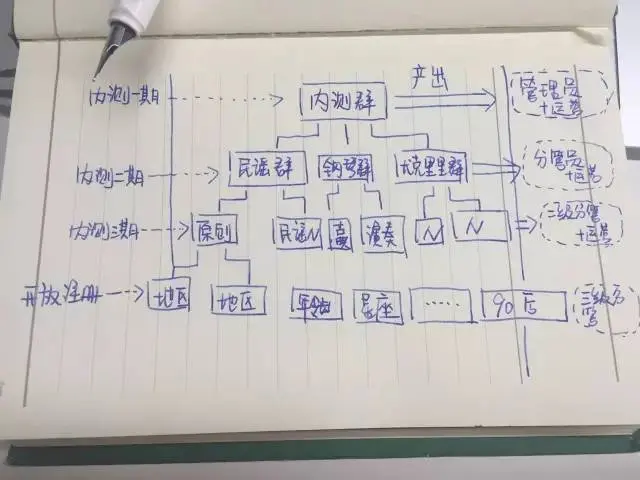 内测一期
内测群
产出
管理员
+运营
内测二期
民谣群
钢琴群
尤克里里群
分管员
+运营
内测三期
原创
民谣N
演奏
N
N
二级分管
+运营
开放注册
地区
地区
年龄
星座
……
90后
三级分
管